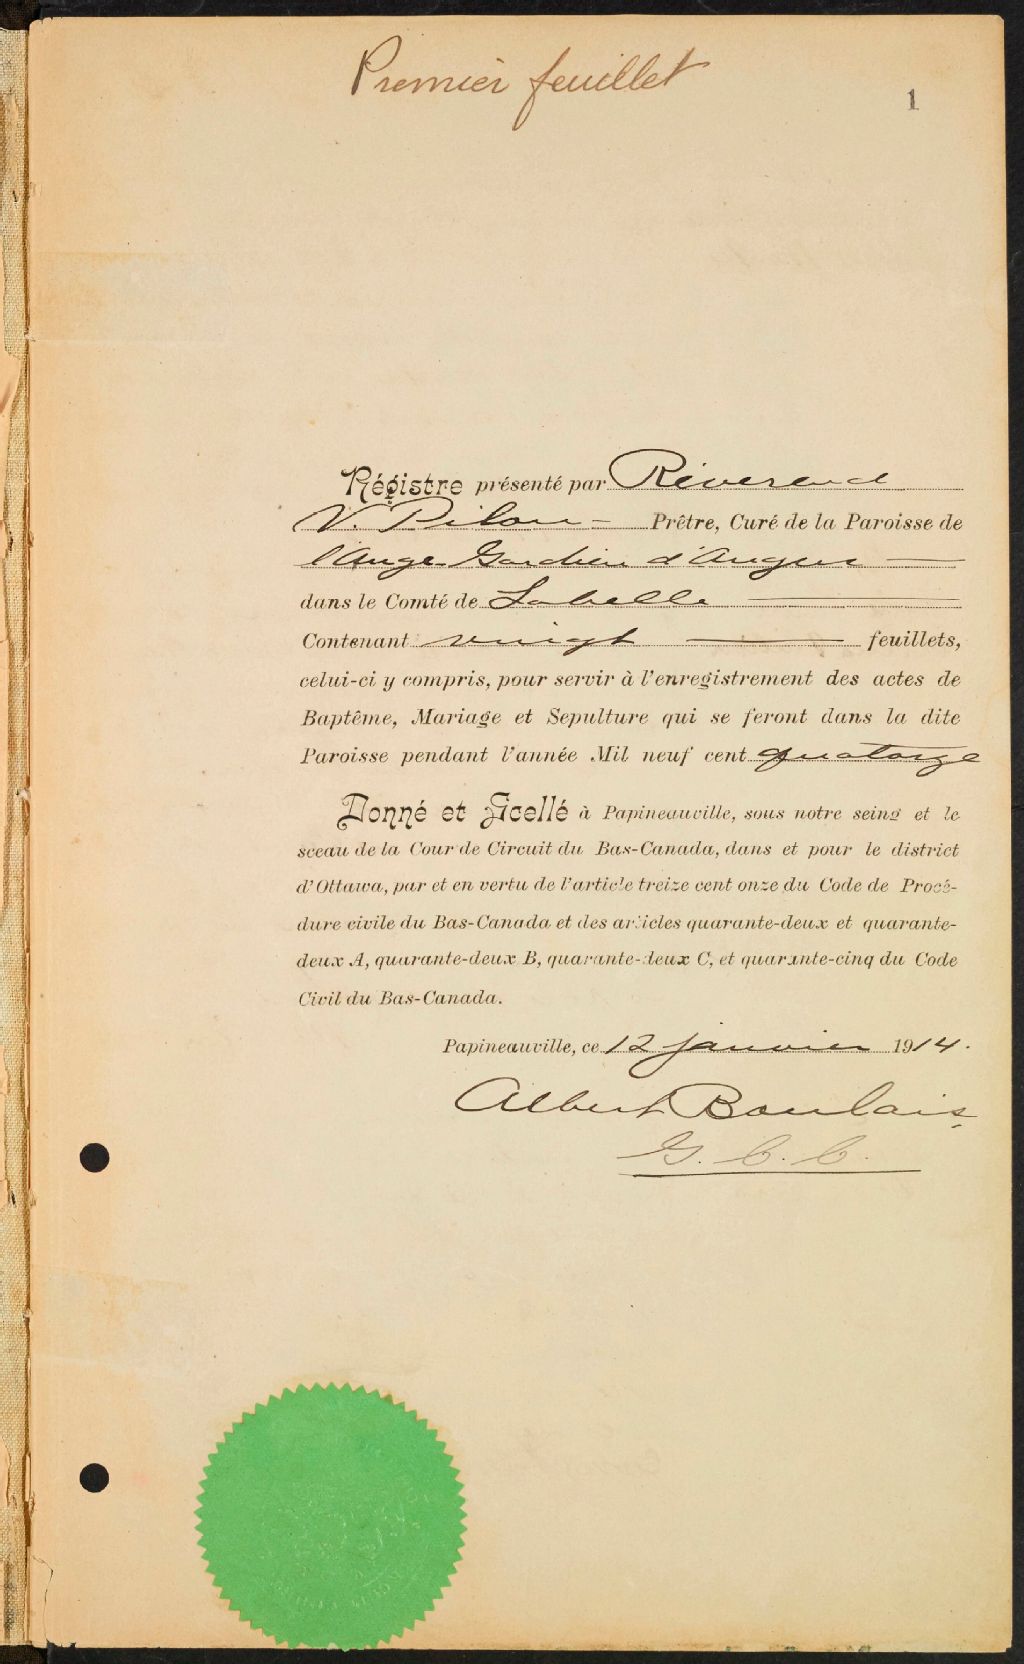 Premier feuillet
1
Régistre présenté par Révérend
V. Pilon - Prêtre, Curé de la Paroisse de
l'Ange-Gardien d'Angers
dans le Comté de Labelle
Contenant vingt feuillets,
celui-ci y compris, pour servir à l'enregistrement des actes de
Baptême, Mariage et Sepulture qui se feront dans la dite
Paroisse pendant l'année Mil neuf cent quatorze
Donné et Scellé à Papineauville, sous notre seing et le
sceau de la Cour de Circuit du Bas-Canada, dans et pour le district
d'Ottawa, par et en vertu de l'article treize cent onze du Code de Procé-
dure civile du Bas-Canada et des articles quarante-deux et quarante-
deux A, quarante-deux B, quarante-deux C, et quarante-cinq du Code
Civil du Bas-Canada.
Papineauville, ce 12 janvier 1914.
Albert Boulais,
G. C. C.